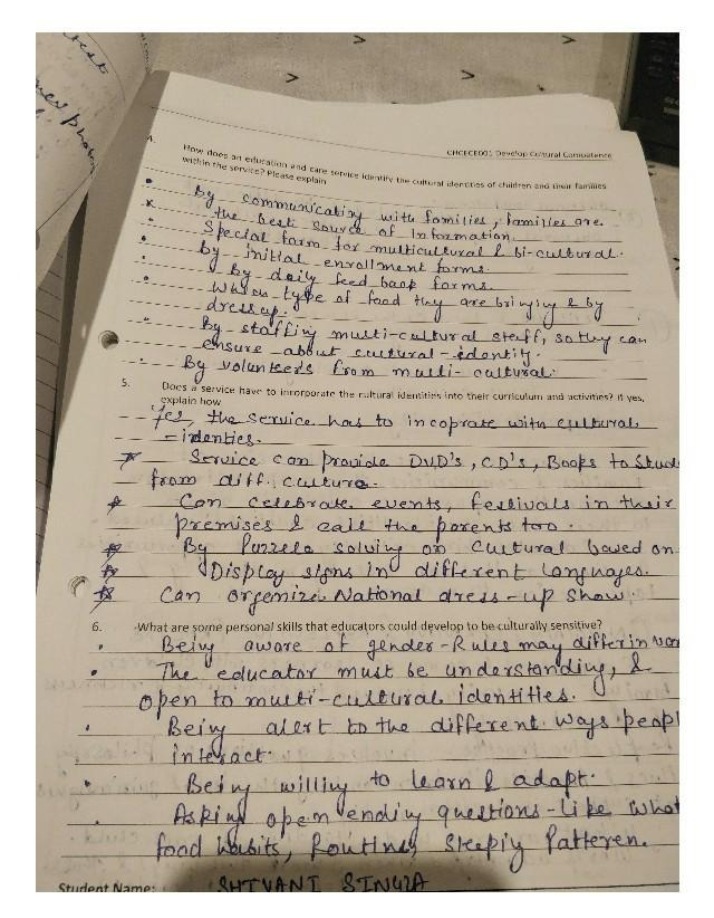 CHCECE001 Develop Cultural Competence
4. How does an education and care service identify the cultural identities of children and their families
within the service? Please explain
• By communicating with families, families are
the best source of Information.
x Special form for multicultural & bi-cultural.
• by initial enrollment forms.
• By daily feed back forms.
• Which type of food they are bringing & by
dress up.
• By staffing multi-cultural staff, so they can
ensure about cultural-identity.
• By volunteers from multi-cultural.
5. Does a service have to incorporate the cultural identities into their curriculum and activities? If yes,
explain how
Yes, the service has to incoprate with cultural
- identies.
* Service can provide DVD's, CD's, Books to Stud
from diff. culture.
* Can celebrate events, festivals in their
premises & call the parents too.
* By Puzzele solving on cultural based on
* Display signs in different languages.
* Can orgenize National dress-up show.
6. -What are some personal skills that educators could develop to be culturally sensitive?
• Being aware of gender-Rules may differ in
• The educator must be understanding, &
open to multi-cultural identities.
• Being alert to the different ways peopl
interact.
• Being willing to learn & adapt.
• Asking open ending questions-Like what
food habits, Routines, Sleepiy Patteren.
Student Name: SHIVANI SINGLA